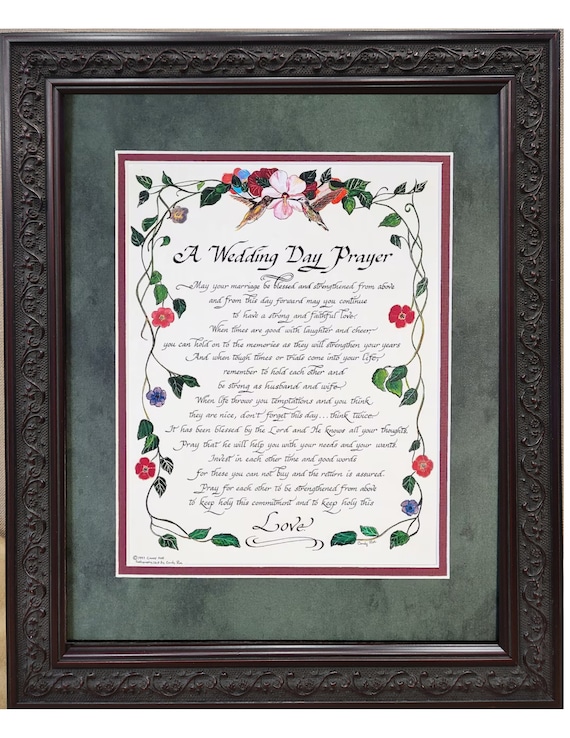 A Wedding Day Prayer
May your marriage be blessed and strengthened from above
and from this day forward may you continue
to have a strong and faithful love.
When times are good with laughter and cheer,
you can hold on to the memories as they will strengthen your years
And when tough times or trials come into your life,
remember to hold each other and
be strong as husband and wife.
When life throws you temptations and you think
they are nice, don't forget this day...think twice.
It has been blessed by the Lord and He knows all your thoughts.
Pray that he will help you with your needs and your wants.
Invest in each other time and good words
for these you can not buy and the return is assured.
Pray for each other to be strengthened from above
to keep holy this commitment and to keep holy this
Love.